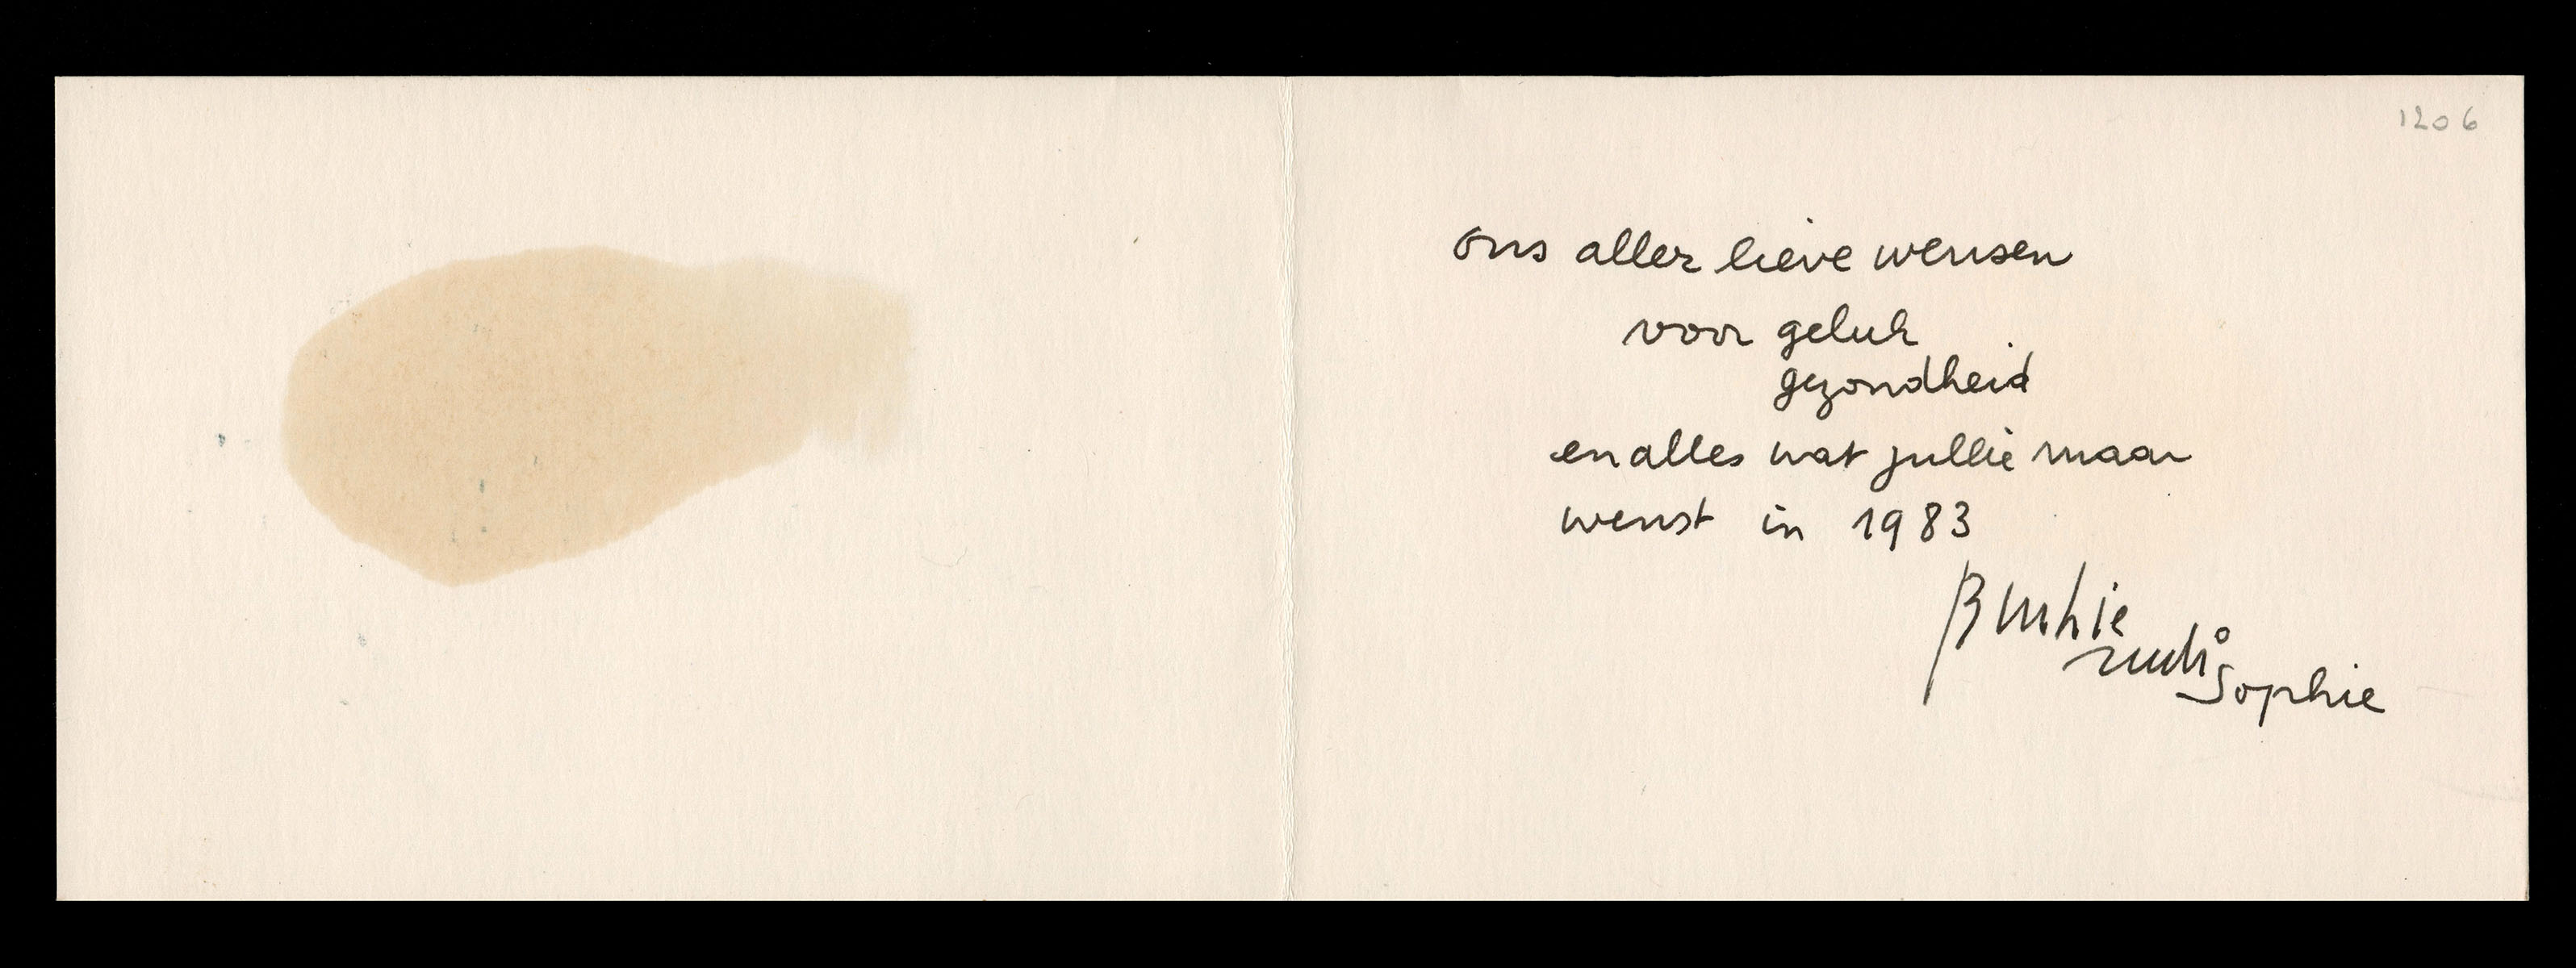 1206
ons aller lieve wensen
voor geluk
gezondheid
en alles wat jullie maar
wenst in 1983
rudi
Sophie